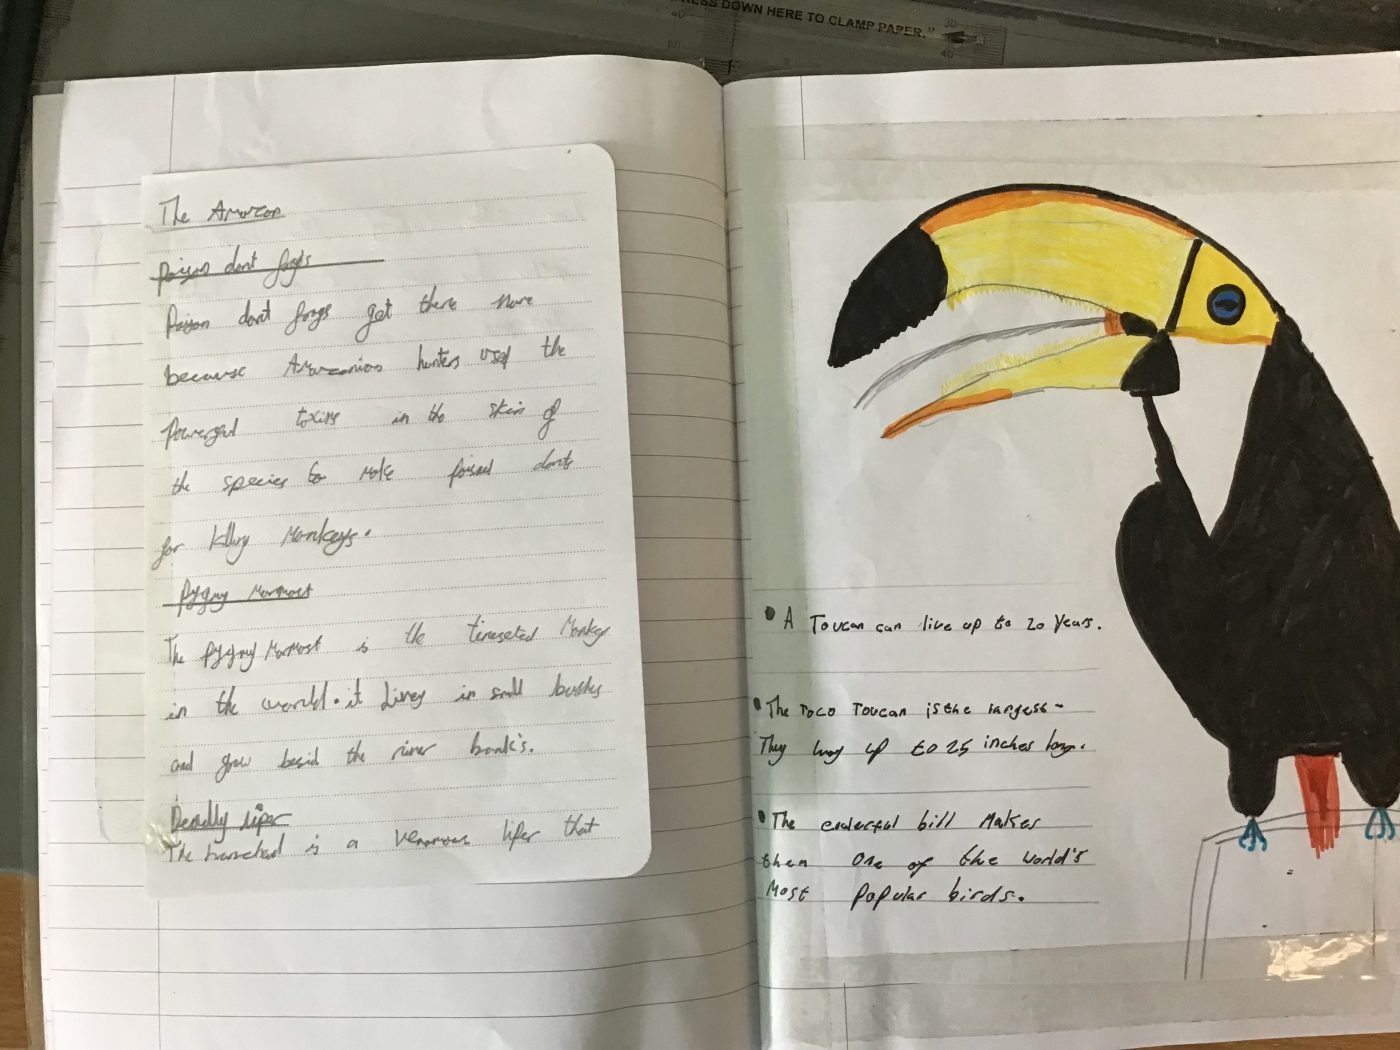 PRESS DOWN HERE TO CLAMP PAPER."
The Amazon
Poison dart frogs
Poison dart frogs get there name
because Amazonios hunters used the
Powerful toxins in the skin of
the species to make poison darts
for killing Monkeys.
Pygmy Marmost
The Pygmy Marmost is the Monkey
in the world. it Livey in small bushes
and grow besid the river bank's.
Deadly viper
The is a venomous viper that
A Toucan can live up to 20 years.
The Toco Toucan is the largest-
They up to 25 inches long.
The bill Makes
them one of the world's
Most Popular birds.